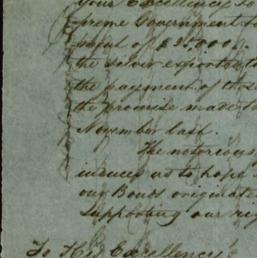 Your Excellency to
preme Government to
ment of £25.000.
the silver exported to
the payment of those
the promise made to
November last.
The notorious
induces us to hope
our Bonds originate
Supporting our rig
To His Excellency